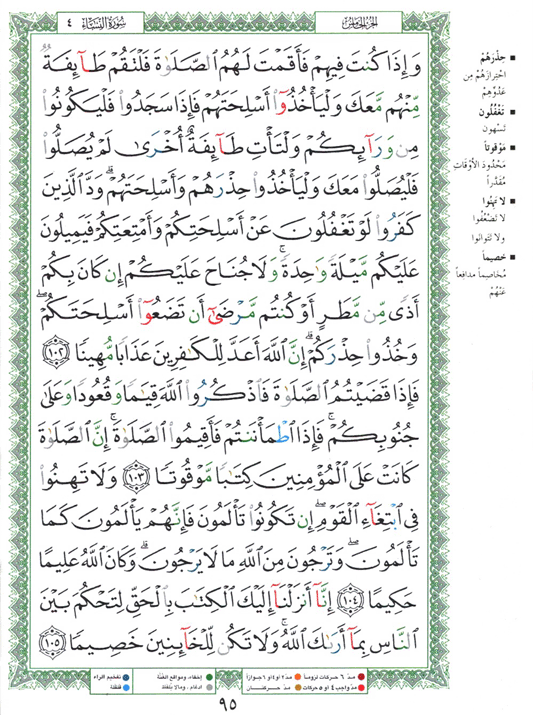 سُورَةُ النِّسَاءِ ٤
الجُزءُ الخَامِسُ
وَإِذَا كُنتَ فِيهِمْ فَأَقَمْتَ لَهُمُ ٱلصَّلَوٰةَ فَلْتَقُمْ طَآئِفَةٌ
مِّنْهُم مَّعَكَ وَلْيَأْخُذُوٓا۟ أَسْلِحَتَهُمْ فَإِذَا سَجَدُوا۟ فَلْيَكُونُوا۟
مِن وَرَآئِكُمْ وَلْتَأْتِ طَآئِفَةٌ أُخْرَىٰ لَمْ يُصَلُّوا۟
فَلْيُصَلُّوا۟ مَعَكَ وَلْيَأْخُذُوا۟ حِذْرَهُمْ وَأَسْلِحَتَهُمْ ۗ وَدَّ ٱلَّذِينَ
كَفَرُوا۟ لَوْ تَغْفُلُونَ عَنْ أَسْلِحَتِكُمْ وَأَمْتِعَتِكُمْ فَيَمِيلُونَ
عَلَيْكُم مَّيْلَةً وَٰحِدَةً ۚ وَلَا جُنَاحَ عَلَيْكُمْ إِن كَانَ بِكُمْ
أَذًى مِّن مَّطَرٍ أَوْ كُنتُم مَّرْضَىٰٓ أَن تَضَعُوٓا۟ أَسْلِحَتَكُمْ ۖ
وَخُذُوا۟ حِذْرَكُمْ ۗ إِنَّ ٱللَّهَ أَعَدَّ لِلْكَٰفِرِينَ عَذَابًا مُّهِينًا ١٠٢
فَإِذَا قَضَيْتُمُ ٱلصَّلَوٰةَ فَٱذْكُرُوا۟ ٱللَّهَ قِيَٰمًا وَقُعُودًا وَعَلَىٰ
جُنُوبِكُمْ ۚ فَإِذَا ٱطْمَأْنَنتُمْ فَأَقِيمُوا۟ ٱلصَّلَوٰةَ ۚ إِنَّ ٱلصَّلَوٰةَ
كَانَتْ عَلَى ٱلْمُؤْمِنِينَ كِتَٰبًا مَّوْقُوتًا ١٠٣ وَلَا تَهِنُوا۟
فِى ٱبْتِغَآءِ ٱلْقَوْمِ ۖ إِن تَكُونُوا۟ تَأْلَمُونَ فَإِنَّهُمْ يَأْلَمُونَ كَمَا
تَأْلَمُونَ ۖ وَتَرْجُونَ مِنَ ٱللَّهِ مَا لَا يَرْجُونَ ۗ وَكَانَ ٱللَّهُ عَلِيمًا
حَكِيمًا ١٠٤ إِنَّآ أَنزَلْنَآ إِلَيْكَ ٱلْكِتَٰبَ بِٱلْحَقِّ لِتَحْكُمَ بَيْنَ
ٱلنَّاسِ بِمَآ أَرَىٰكَ ٱللَّهُ ۚ وَلَا تَكُن لِّلْخَآئِنِينَ خَصِيمًا ١٠٥
حِذْرَهُمْ
احْتِرَازَهُمْ مِن
عَدُوِّهِمْ
تَغْفُلُون
تَسْهون
مَوْقوتاً
مَحْدُودَ الأَوْقَاتِ
مُقَدَّراً
لا تَهِنُوا
لا تَضْعُفُوا
ولا تَتَوانَوا
خَصِيماً
مُخَاصِماً مدافعاً
عَنْهُمْ
مدّ ٦ حركات لزوماً مدّ ٢ أو ٤ أو ٦ جوازاً إخفاء، ومواقع الغنّة تفخيم الراء
مدّ واجب ٤ أو ٥ حركات مدّ حركتان إدغام، وما لا يُلفَظ قلقلة
٩٥